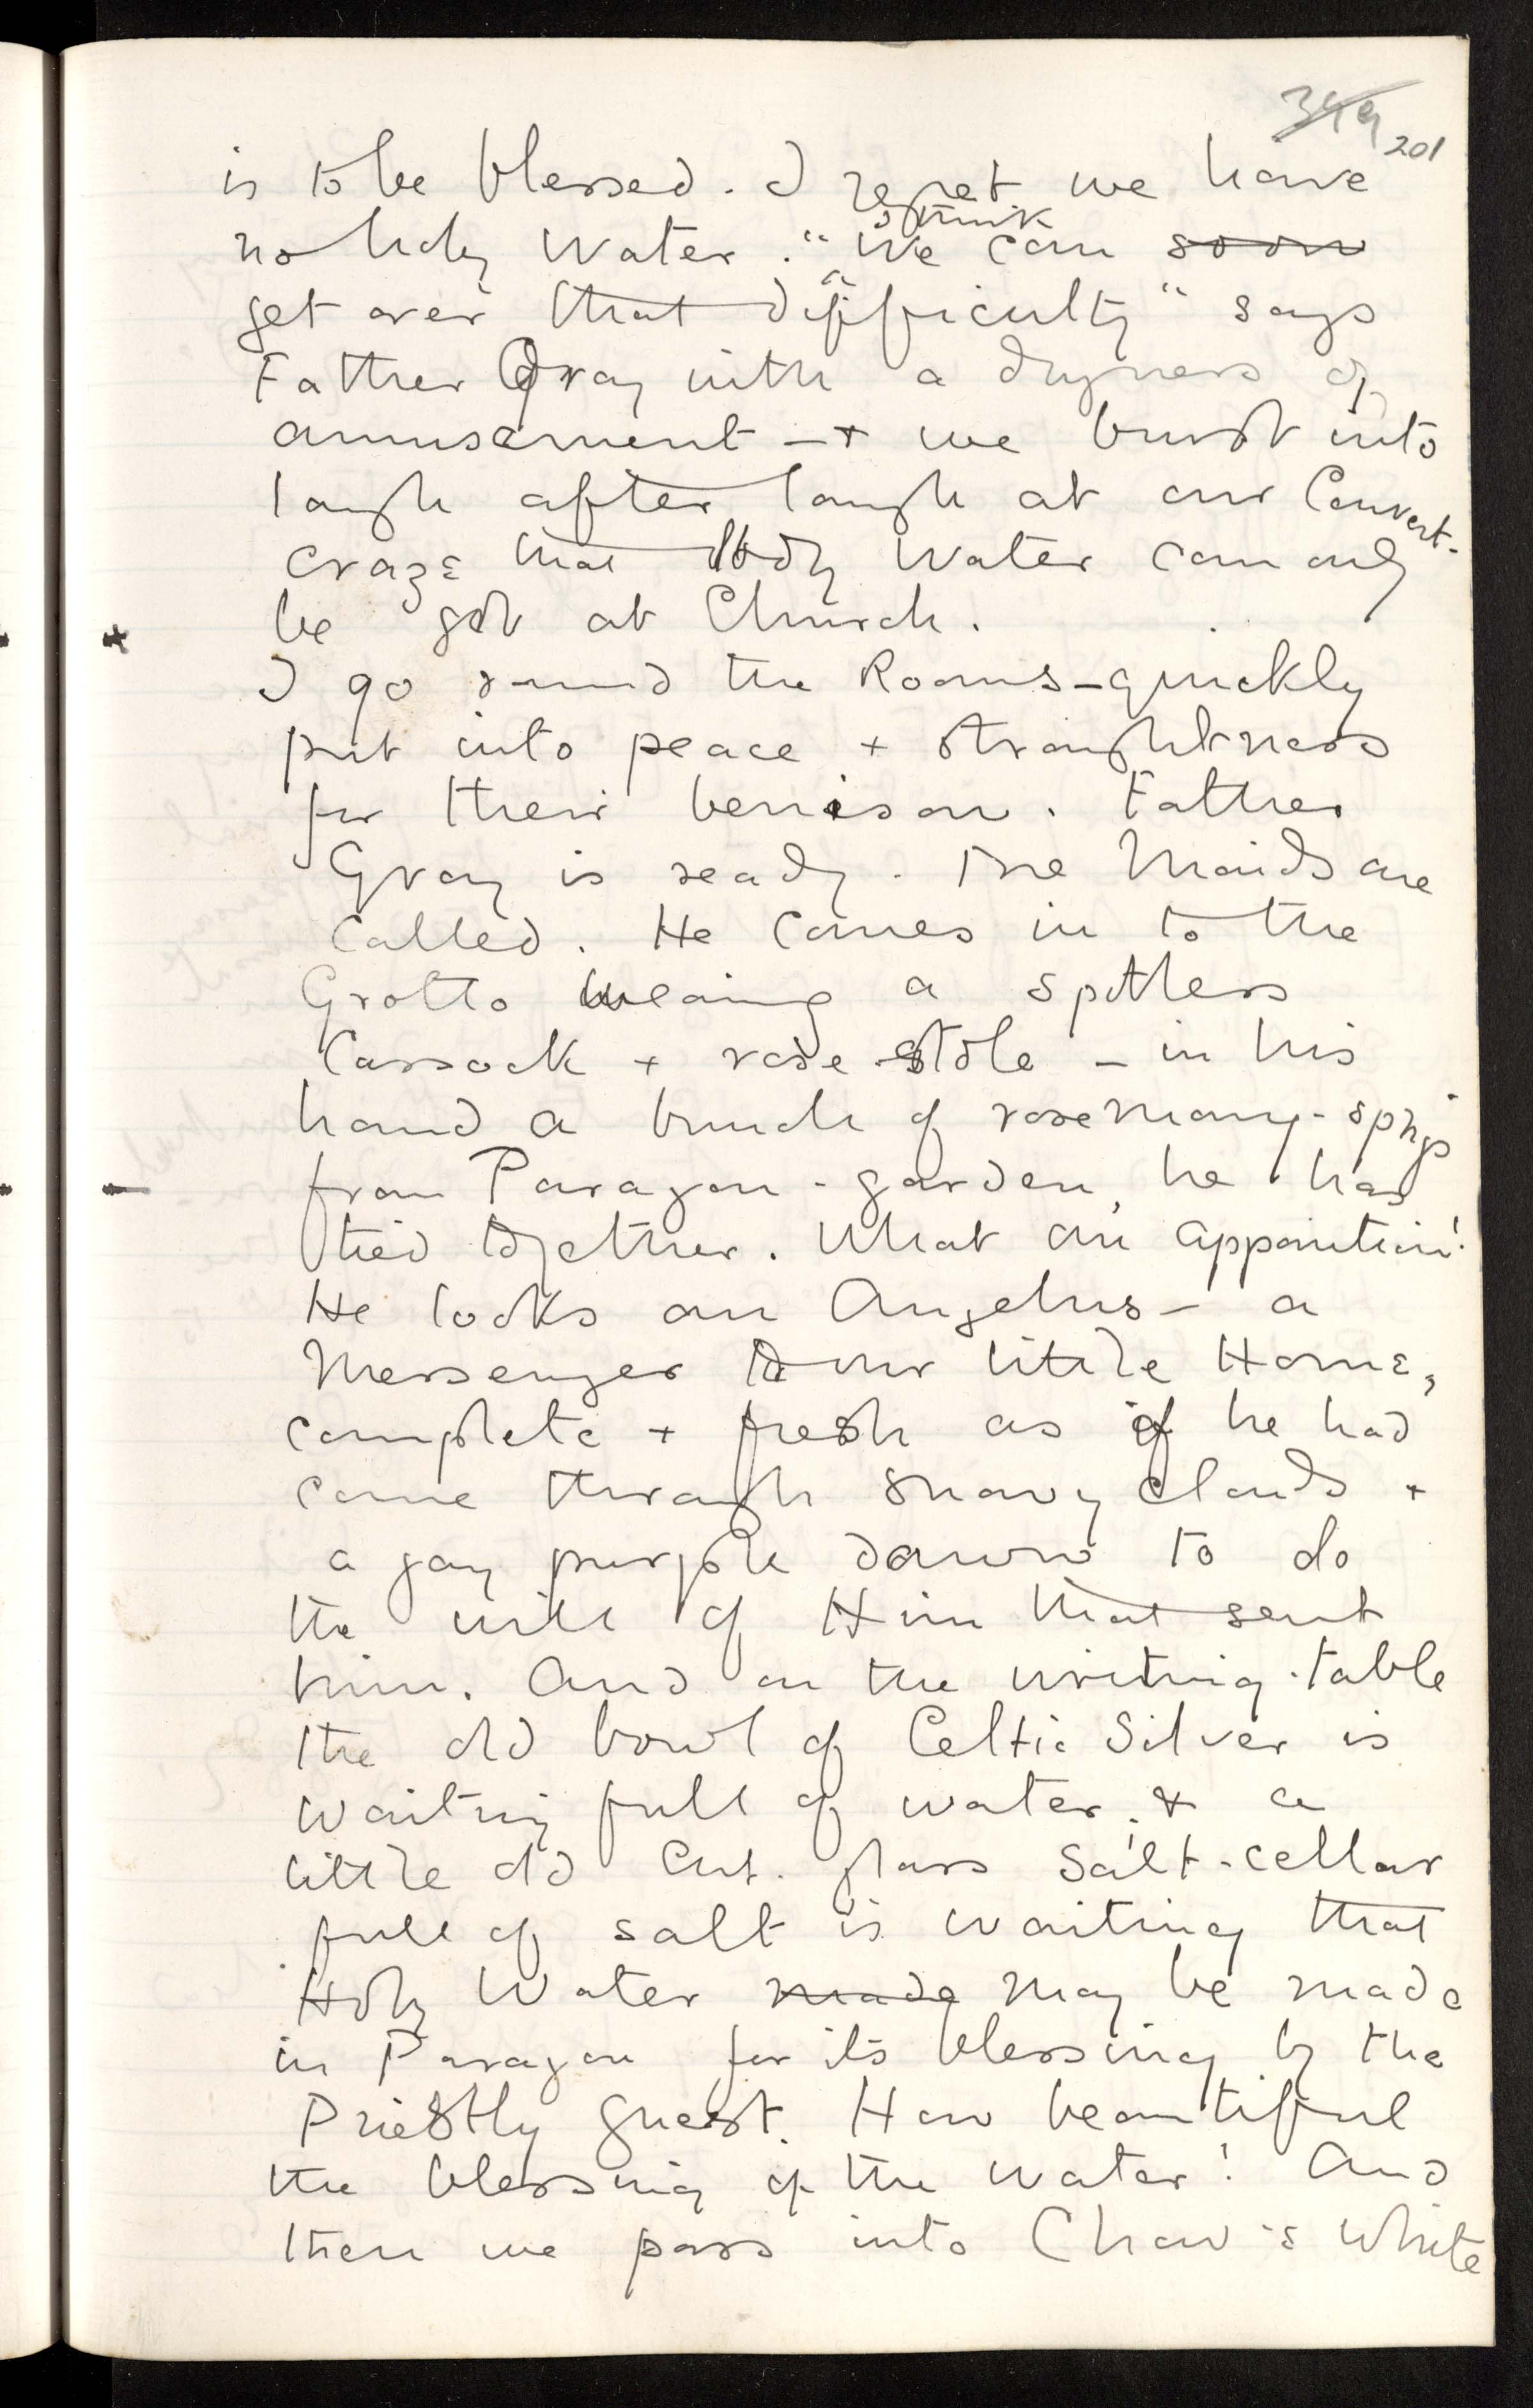 349 201
is to be blessed. I regret we have
no holy Water. "We think can soon
get over that difficulty" says
Father Gray with a dryness of
amusement — + we burst into
laugh after laugh at our Convert-
craze that Holy Water can only
be got at Church.
I go round the Rooms — quickly
put into peace + straightness
for their benison. Father
Gray is ready. The Maids are
called. He comes in to the
Grotto wearing a spotless
Cassock + rose-stole — in his
hand a bunch of rosemary-sprigs
from Paragon-garden, he has
tied together. What an apparition!
He looks an Angelus — a
Messenger to our little Home,
complete + fresh as if he had
come through snowy clouds +
a gay purple dawn to do
the will of Him that sent
him. And on the writing-table
the old bowl of Celtic Silver is
waiting full of water, & a
little old cut-glass salt-cellar
full of salt is waiting that
Holy Water made may be made
in Paragon for its blessing by the
Priestly guest. How beautiful
the blessing of the water! And
then we pass into Chow's White